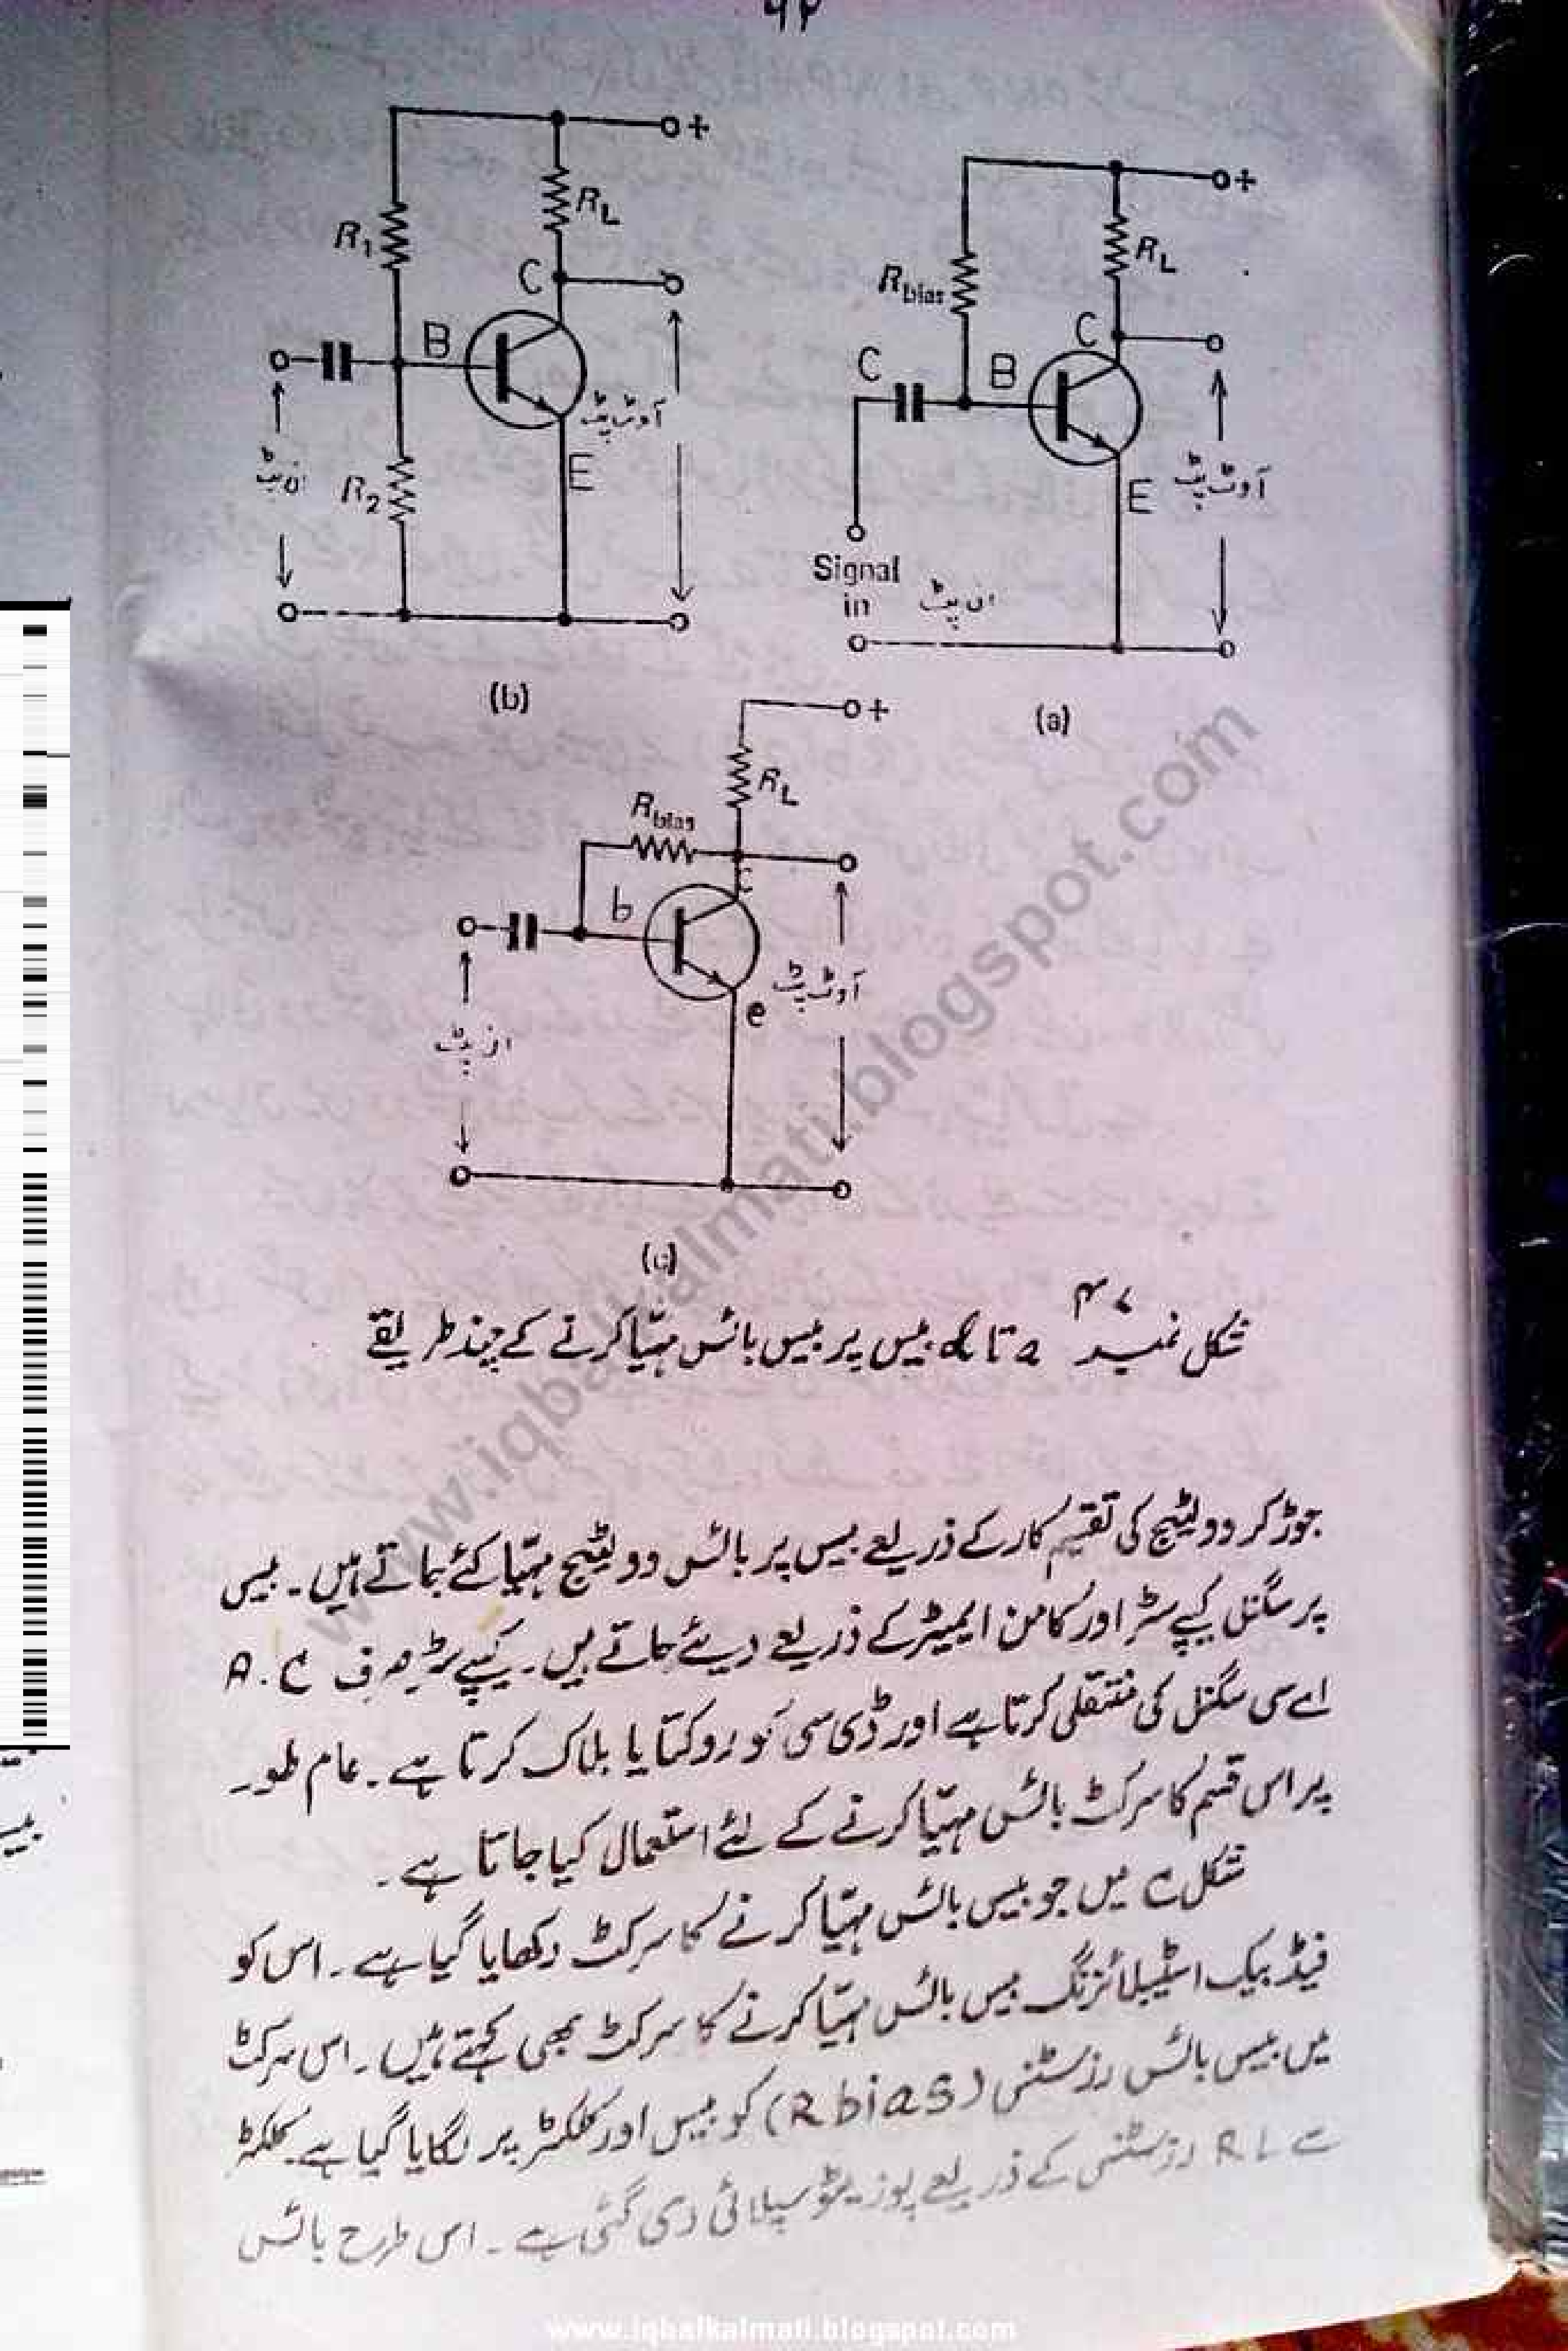 +
R₁
R_L
C
B
آوٹ پٹ
ان پٹ
R₂
E
(b)
+
R_bias
R_L
C
C
B
E
آوٹ پٹ
Signal
in
ان پٹ
(a)
+
R_L
R_bias
C
b
e
آوٹ پٹ
ان پٹ
(c)
شکل نمبر ۴۷ a تا d بیس پر بیس بائس مہیّا کرنے کے چند طریقے
جوڑ کر وولٹیج کی تقسیم کار کے ذریعے بیس پر بائس وولٹیج مہیّا کئے جاتے ہیں۔ بیس
پر سگنل کیپے سٹر اور کامن ایمیٹر کے ذریعے دیئے جاتے ہیں۔ کیپے سٹر صرف A.C
اے سی سگنل کی منتقلی کرتا ہے اور ڈی سی کو روکتا یا بلاک کرتا ہے۔ عام طور
پر اس قسم کا سرکٹ بائس مہیّا کرنے کے لئے استعمال کیا جاتا ہے۔
شکل c میں جو بیس بائس مہیّا کرنے کا سرکٹ دکھایا گیا ہے۔ اس کو
فیڈ بیک اسٹیبلائزنگ بیس بائس مہیا کرنے کا سرکٹ بھی کہتے ہیں۔ اس سرکٹ
میں بیس بائس رزسٹنس (R bias) کو بیس اور کلکٹر پر لگایا گیا ہے۔ کلکٹر
سے RL رزسٹنس کے ذریعے پوزیٹو سپلائی دی گئی ہے۔ اس طرح بائس
www.iqbalkalmati.blogspot.com
www.iqbalkalmati.blogspot.com